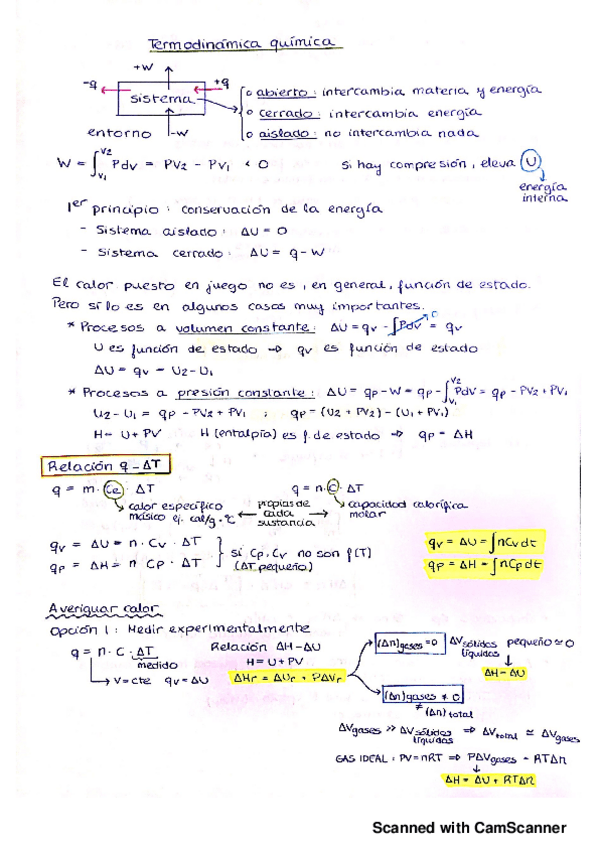 Termodinámica química
+W
-q
+q
sistema
entorno
-W
o abierto: intercambia materia y energía
o cerrado: intercambia energía
o aislado: no intercambia nada
W = ∫V1V2 Pdv = PV2 - PV1 < 0
Si hay compresión, eleva U
energía interna
1er principio: conservación de la energía
- Sistema aislado: ΔU = 0
- Sistema cerrado: ΔU = q - W
El calor puesto en juego no es, en general, función de estado.
Pero sí lo es en algunos casos muy importantes.
* Procesos a volumen constante: ΔU = qv - ∫Pdv = qv
0
U es función de estado → qv es función de estado
ΔU = qv = U2 - U1
* Procesos a presión constante: ΔU = qp - W = qp - ∫V1V2 PdV = qp - PV2 + PV1
U2 - U1 = qp - PV2 + PV1 ; qp = (U2 + PV2) - (U1 + PV1)
H = U + PV H (entalpía) es f. de estado ⇒ qp = ΔH
Relación q - ΔT
q = m · Ce · ΔT
q = n · C · ΔT
calor específico másico ej. cal/g·ºC
propias de cada sustancia
capacidad calorífica molar
qv = ΔU = n · Cv · ΔT
qp = ΔH = n · Cp · ΔT
si Cp, Cv no son f(T)
(ΔT pequeño)
qv = ΔU = ∫nCvdt
qp = ΔH = ∫nCpdt
Averiguar calor
Opción 1: Medir experimentalmente
q = n · C · ΔT
medido
V = cte qv = ΔU
Relación ΔH - ΔU
H = U + PV
ΔHr = ΔUr + PΔVr
(Δn)gases = 0
ΔV sólidos líquidos pequeño ≃ 0
ΔH = ΔU
(Δn)gases ≠ 0
≠ (Δn) total
ΔVgases >> ΔV sólidos líquidos ⇒ ΔVtotal ≃ ΔVgases
GAS IDEAL: PV = nRT ⇒ PΔVgases = RTΔn
ΔH = ΔU + RTΔn
Scanned with CamScanner